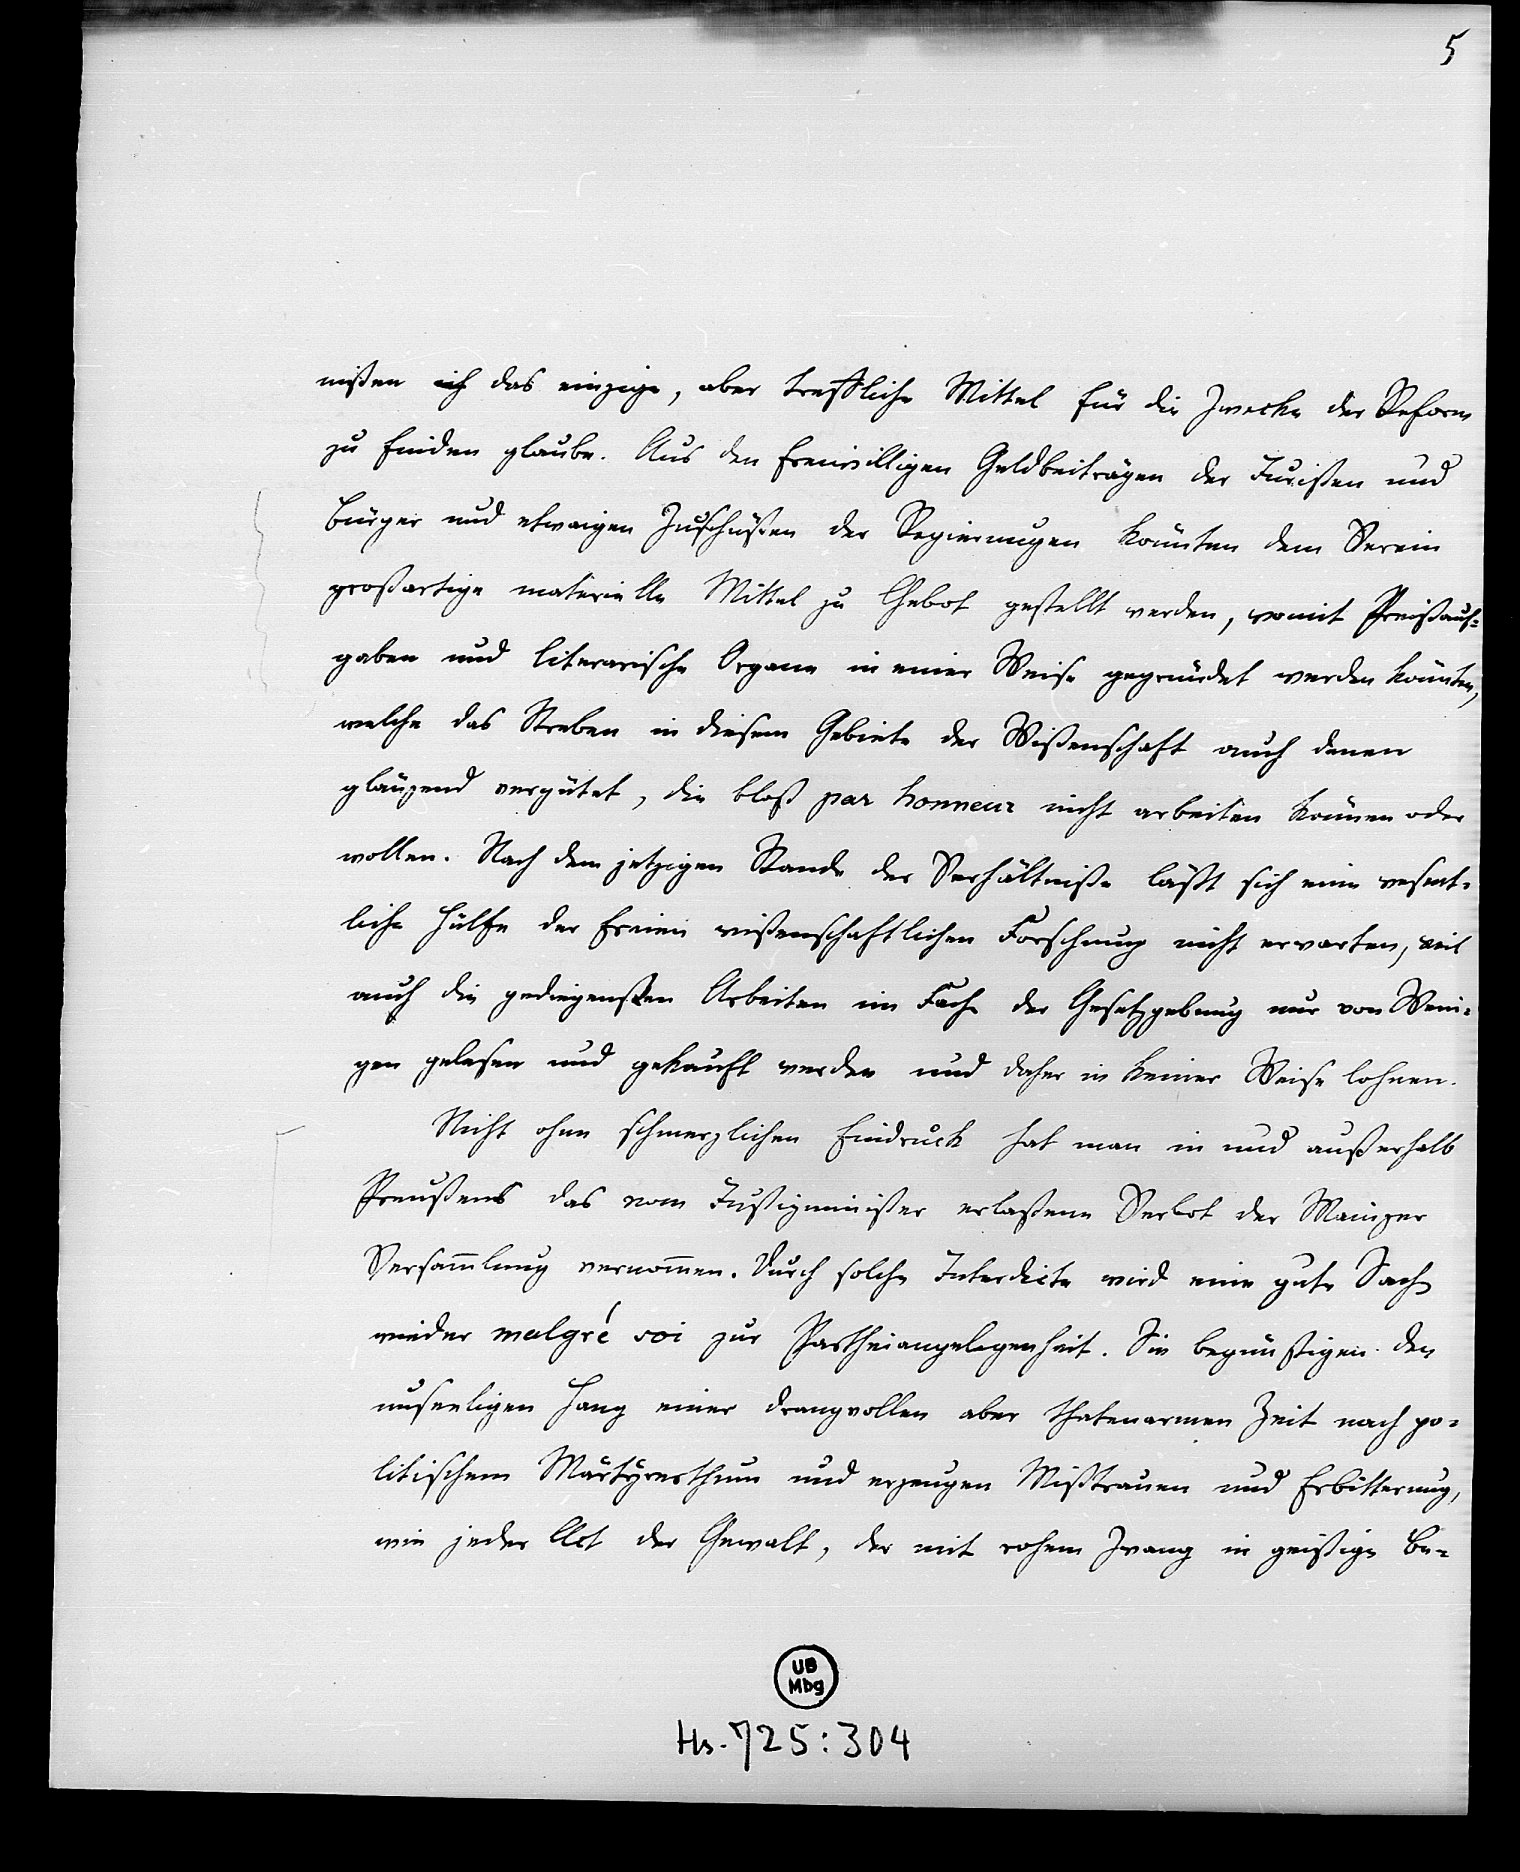 5
nißen ich das einzige, aber treffliche Mittel für die Zwecke der Reform
zu finden glaube. Aus den freiwilligen Geldbeiträgen der Juristen und
Bürger und etwaigen Zuschüßen der Regierungen könnten dem Verein
großartige materielle Mittel zu Gebot gestellt werden, womit Preißauf-
gaben und literarische Organe in einer Weise gegründet werden könnten,
welche das Streben in diesem Gebiete der Wißenschaft auch denen
glänzend vergütet, die bloß par honneur nicht arbeiten können oder
wollen. Nach dem jetzigen Stande der Verhältniße läßt sich eine wesent-
liche Hülfe der freien wißenschaftlichen Forschung nicht erwarten, weil
auch die gediegensten Arbeiten im Fache der Gesetzgebung nur von Weni-
gen gelesen und gekauft werden und daher in keiner Weise lohnen.
Nicht ohne schmerzlichen Eindruck hat man in und außerhalb
Preußens das vom Justizminister erlaßene Verbot der Mainzer
Versam̄lung vernom̄en. Durch solche Interdicte wird eine gute Sache
wieder malgré soi zur Partheiangelegenheit. Sie begünstigen den
unseeligen Hang einer drangvollen aber thatenarmen Zeit nach po-
litischem Märtyrerthum und erzeugen Mißtrauen und Erbitterung,
wie jeder Act der Gewalt, der mit rohem Zwang in geistige Be-
UB
Mbg
Hs. 725:304